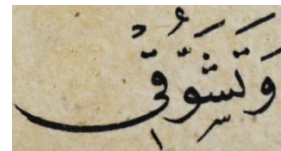 وَتَشَوُّقِي